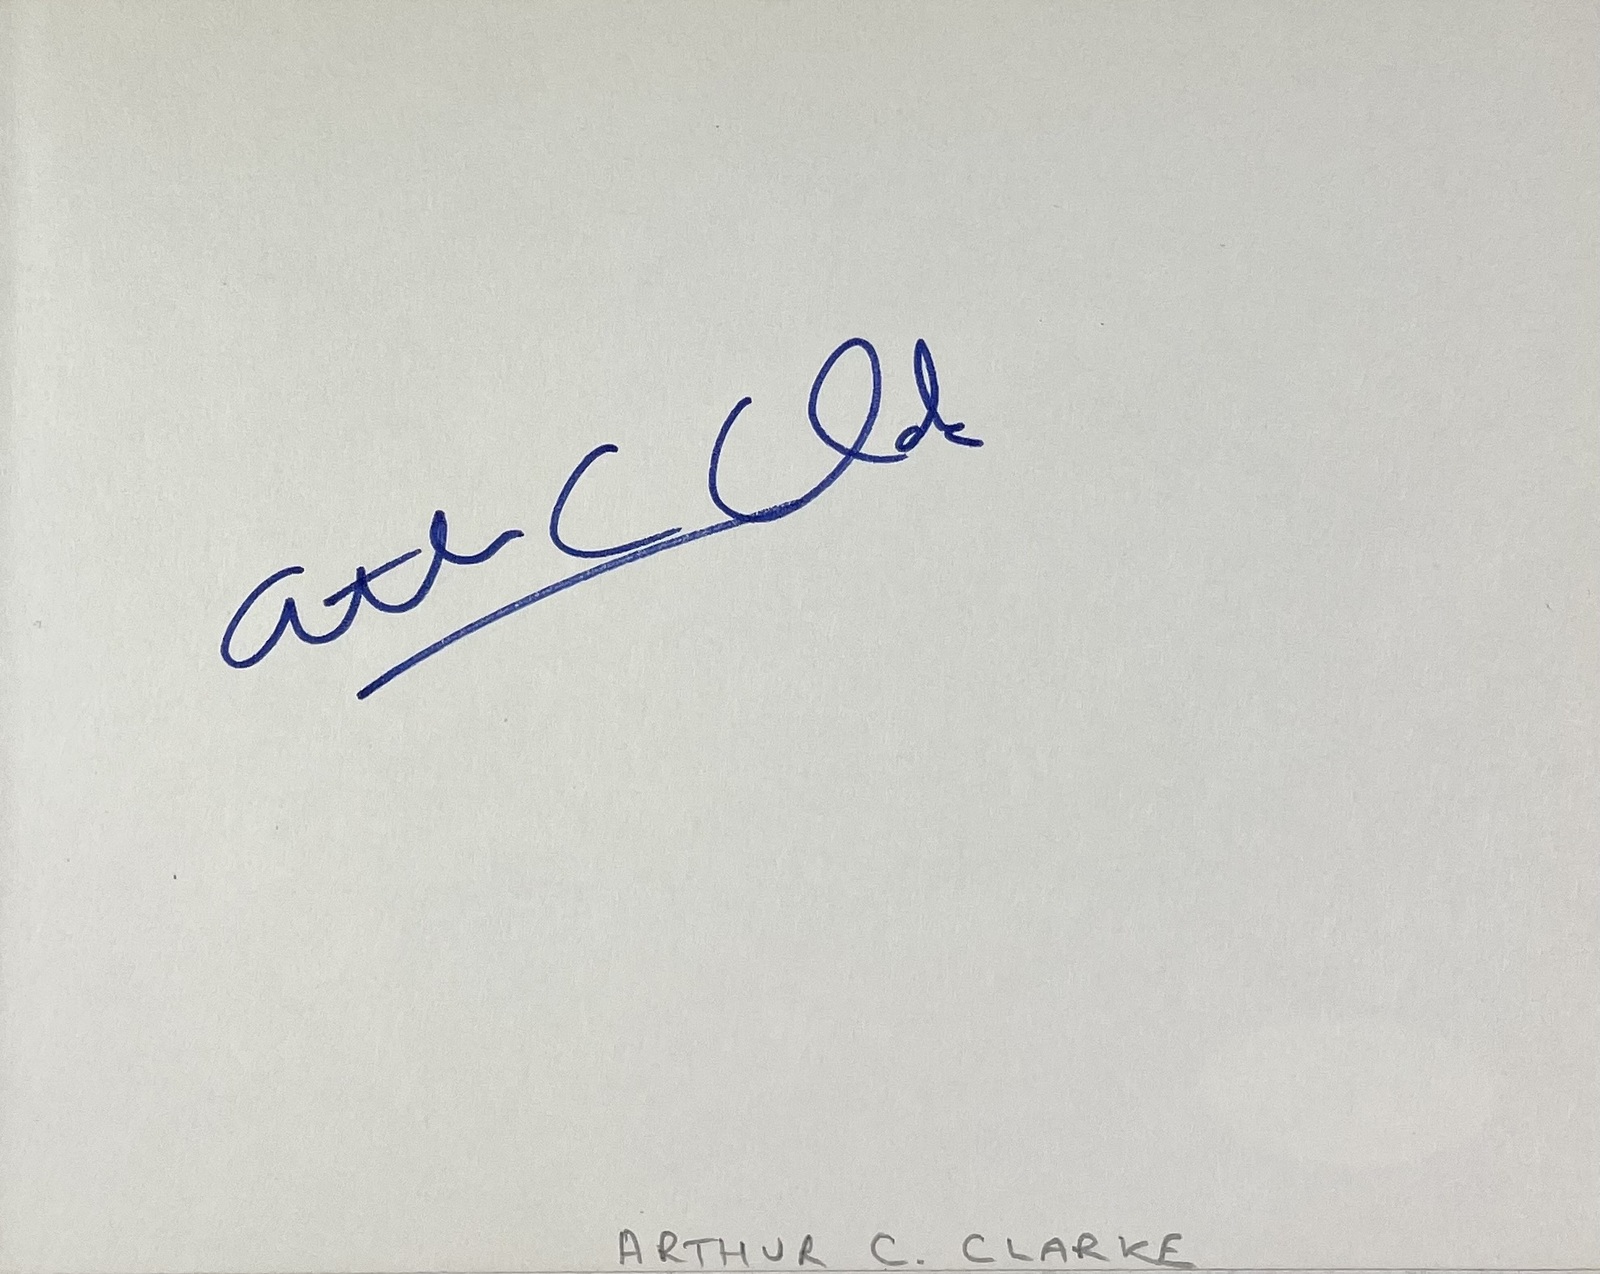 Arthur C Clarke
ARTHUR C. CLARKE